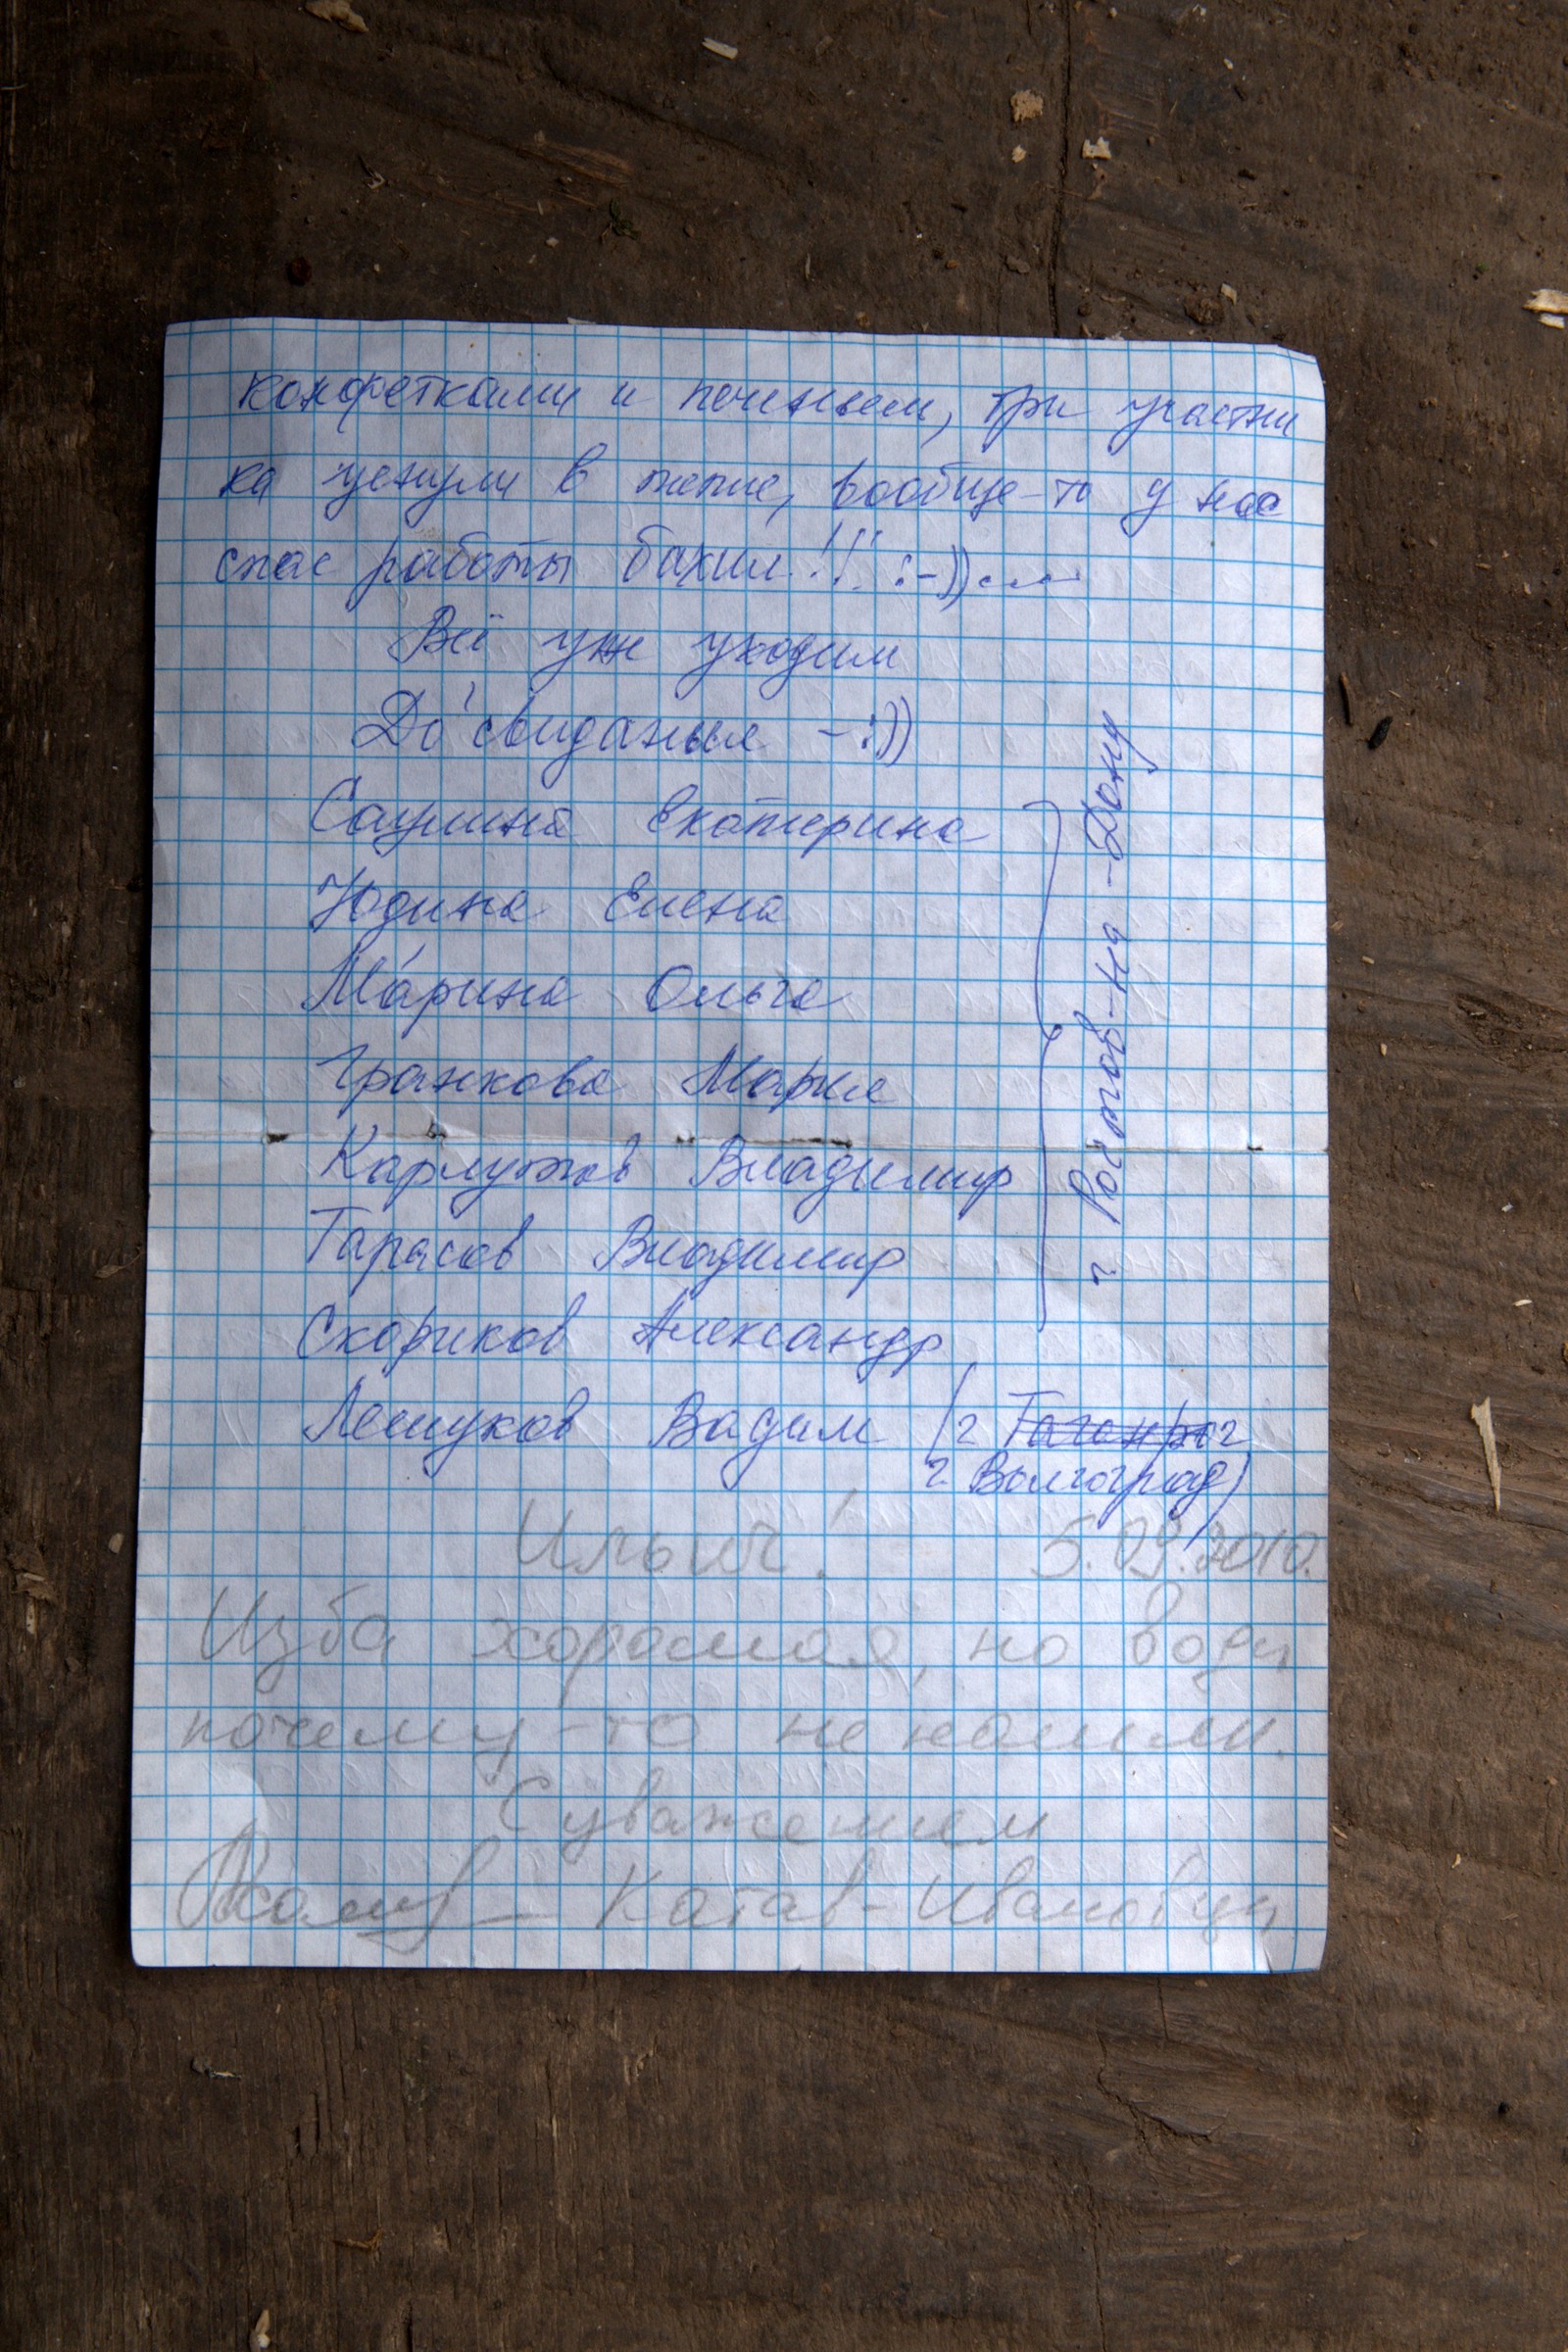 конфетками и печеньем, три участни
ка уснули в тепле, вообще-то у нас
спас работы был!!! :-))
Всё уже уходим
До свиданья -:))
Саулина Екатерина
Юдина Елена
Марина Ольга
Гранкова Мария
Карлутов Владимир
Тарасов Владимир
Скориков Александр
г. Ростов-на-Дону
Лешуков Вадим (г Таганрог
г. Волгоград)
Ильич! 5.09.2010.
Изба хорошая, но воды
почему-то не нашли.
С уважением
Катав-Ивановцы